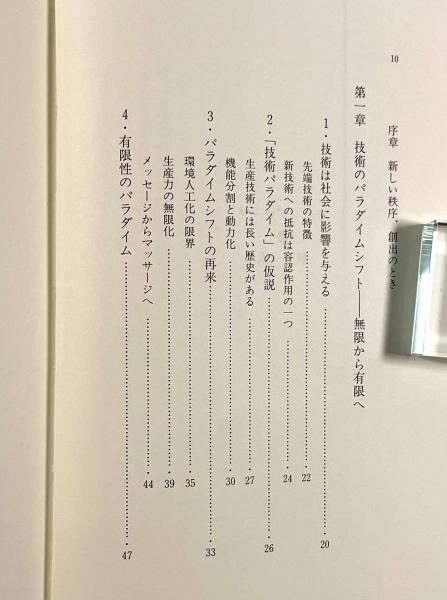 10
序章　新しい秩序、創出のとき
第一章　技術のパラダイムシフト――無限から有限へ
1・技術は社会に影響を与える……20
先端技術の特徴……22
新技術への抵抗は容認作用の一つ……24
2・「技術パラダイム」の仮説……26
生産技術には長い歴史がある……27
機能分割と動力化……30
3・パラダイムシフトの再来……33
環境人工化の限界……35
生産力の無限化……39
メッセージからマッサージへ……44
4・有限性のパラダイム……47